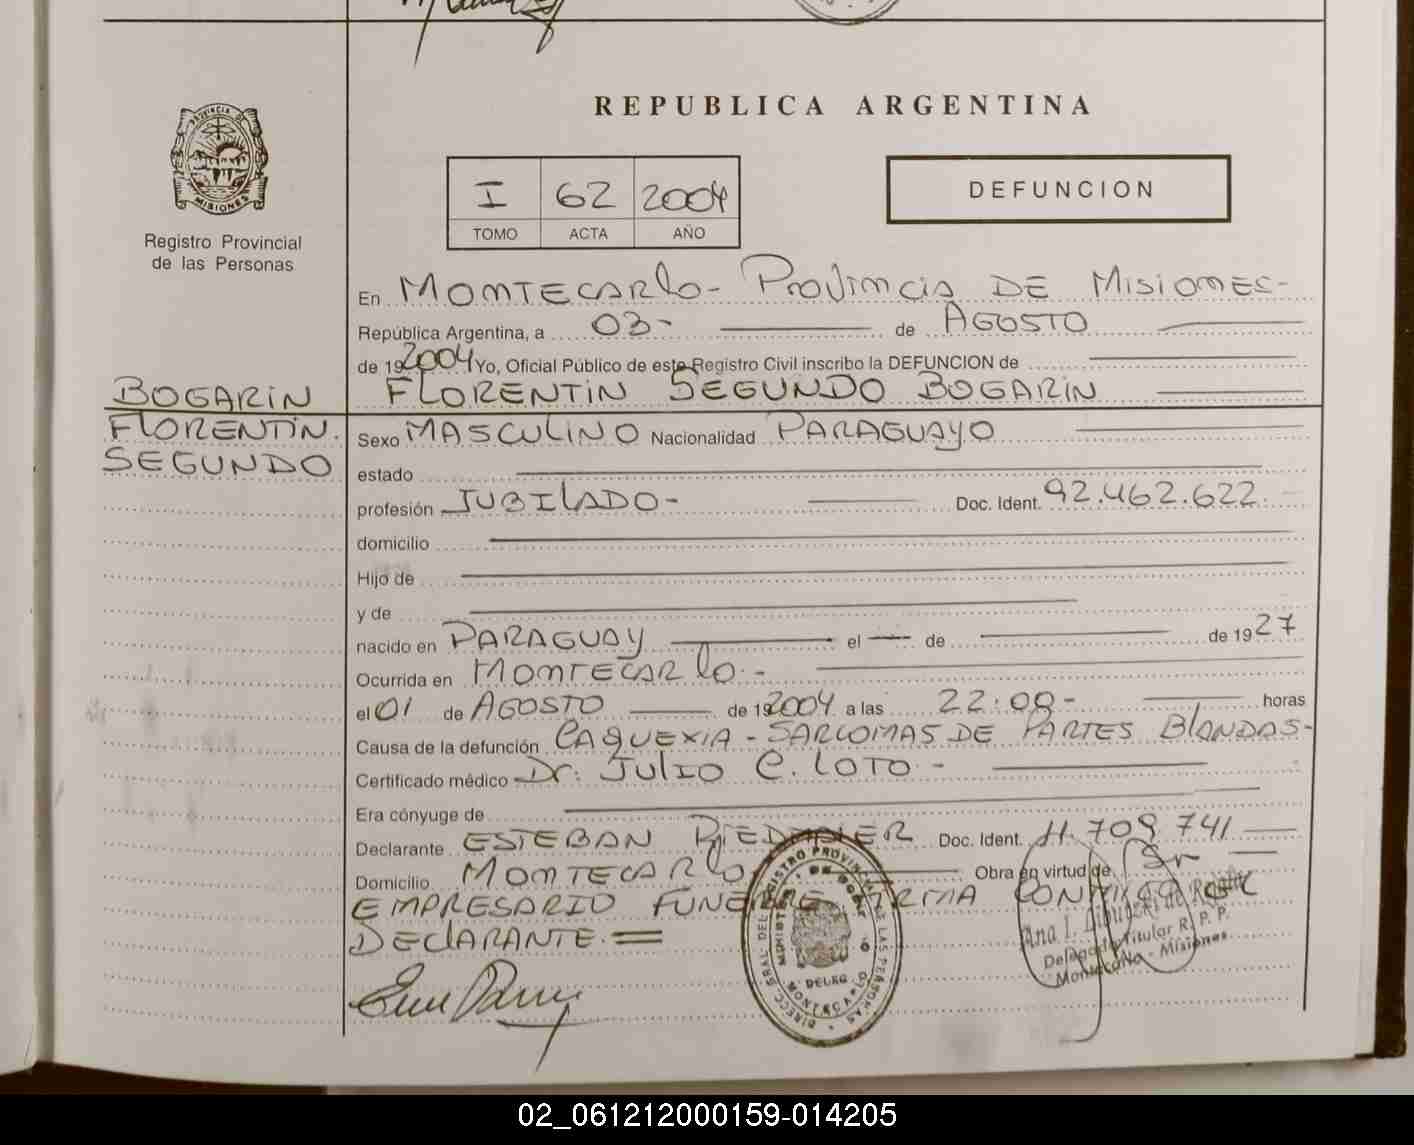 REPUBLICA ARGENTINA
PROVINCIA DE
MISIONES
Registro Provincial
de las Personas
I 62 2004
TOMO ACTA AÑO
DEFUNCION
En MONTECARLO - PROVINCIA DE MISIONES -
República Argentina, a 03 - de AGOSTO
de 192004 Yo, Oficial Público de este Registro Civil inscribo la DEFUNCION de
FLORENTIN SEGUNDO BOGARIN
BOGARIN
FLORENTIN.
SEGUNDO
Sexo MASCULINO Nacionalidad PARAGUAYO
estado
profesión JUBILADO - Doc. Ident. 92.462.622. -
domicilio
Hijo de
y de
nacido en PARAGUAY el de de 1927
Ocurrida en MONTECARLO. -
el 01 de AGOSTO de 192004 a las 22:00 - horas
Causa de la defunción CAQUEXIA - SARCOMAS DE PARTES BLANDAS -
Certificado médico Dr. JULIO C. LOTO -
Era cónyuge de
Declarante ESTEBAN Doc. Ident. 11.709.741
Domicilio MONTECARLO Obra en virtud de Ser
EMPRESARIO FUNEBRE FIRMA CONMIGO EL
DECLARANTE. =
DIRECC. GRAL. DEL REGISTRO PROVINCIAL DE LAS PERSONAS
MINISTERIO DE GOB.
DELEG.
MONTECARLO
Ana I.
Delegado Titular R. P. P.
Montecarlo - Misiones
02_061212000159-014205